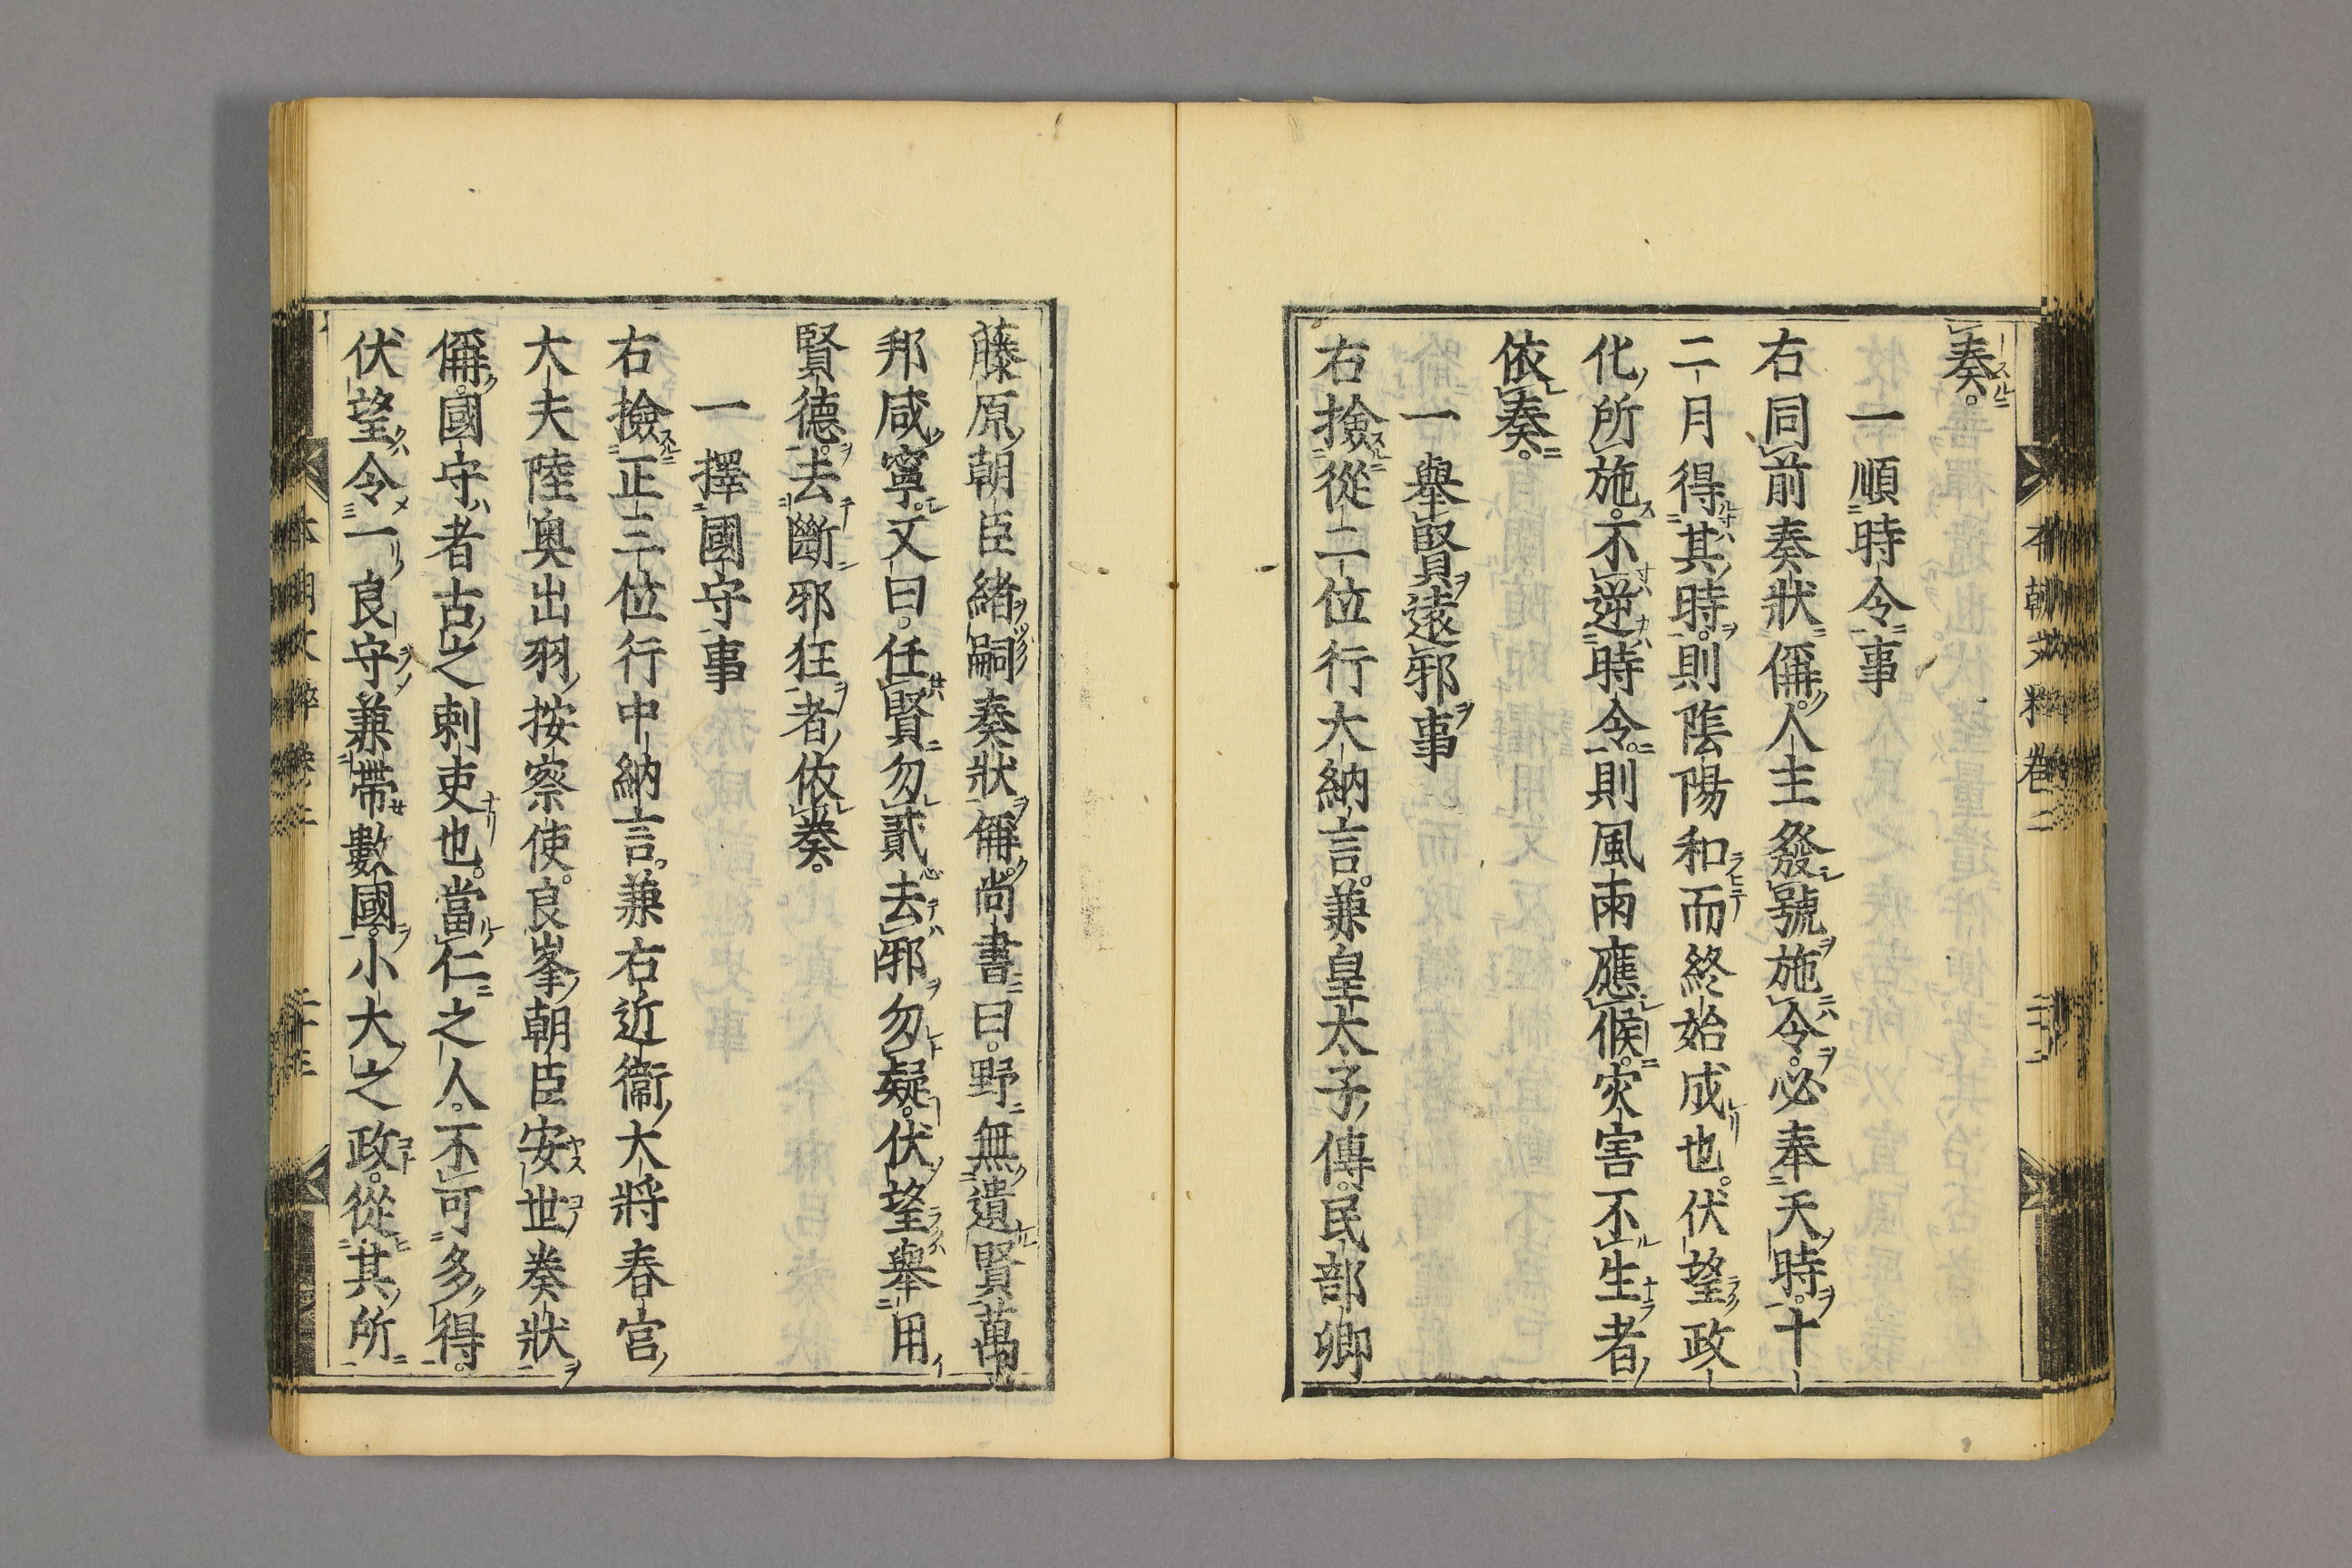 奏。
一順時令事
右同前奏狀偁。人主發號施令。必奉天時。十
二月得其時。則陰陽和而終始成也。伏望政
化所施。不逆時令。則風雨應候。灾害不生者
依奏。
一舉賢遠邪事
右撿從二位行大納言。兼皇太子傳。民部卿
藤原朝臣緒嗣奏狀偁。尚書曰。野無遺賢萬
邦咸寧。又曰。任賢勿貳去邪勿疑。伏望舉用
賢德。去斷邪狂者依奏。
一擇國守事
右撿正三位行中納言。兼右近衞大將春宮
大夫陸奧出羽按察使。良峯朝臣安世奏狀
偁。國守者古之刺吏也。當仁之人。不可多得。
伏望令一良守兼帶數國。小大之政。從其所
本朝文粹卷二
本朝文粹卷二